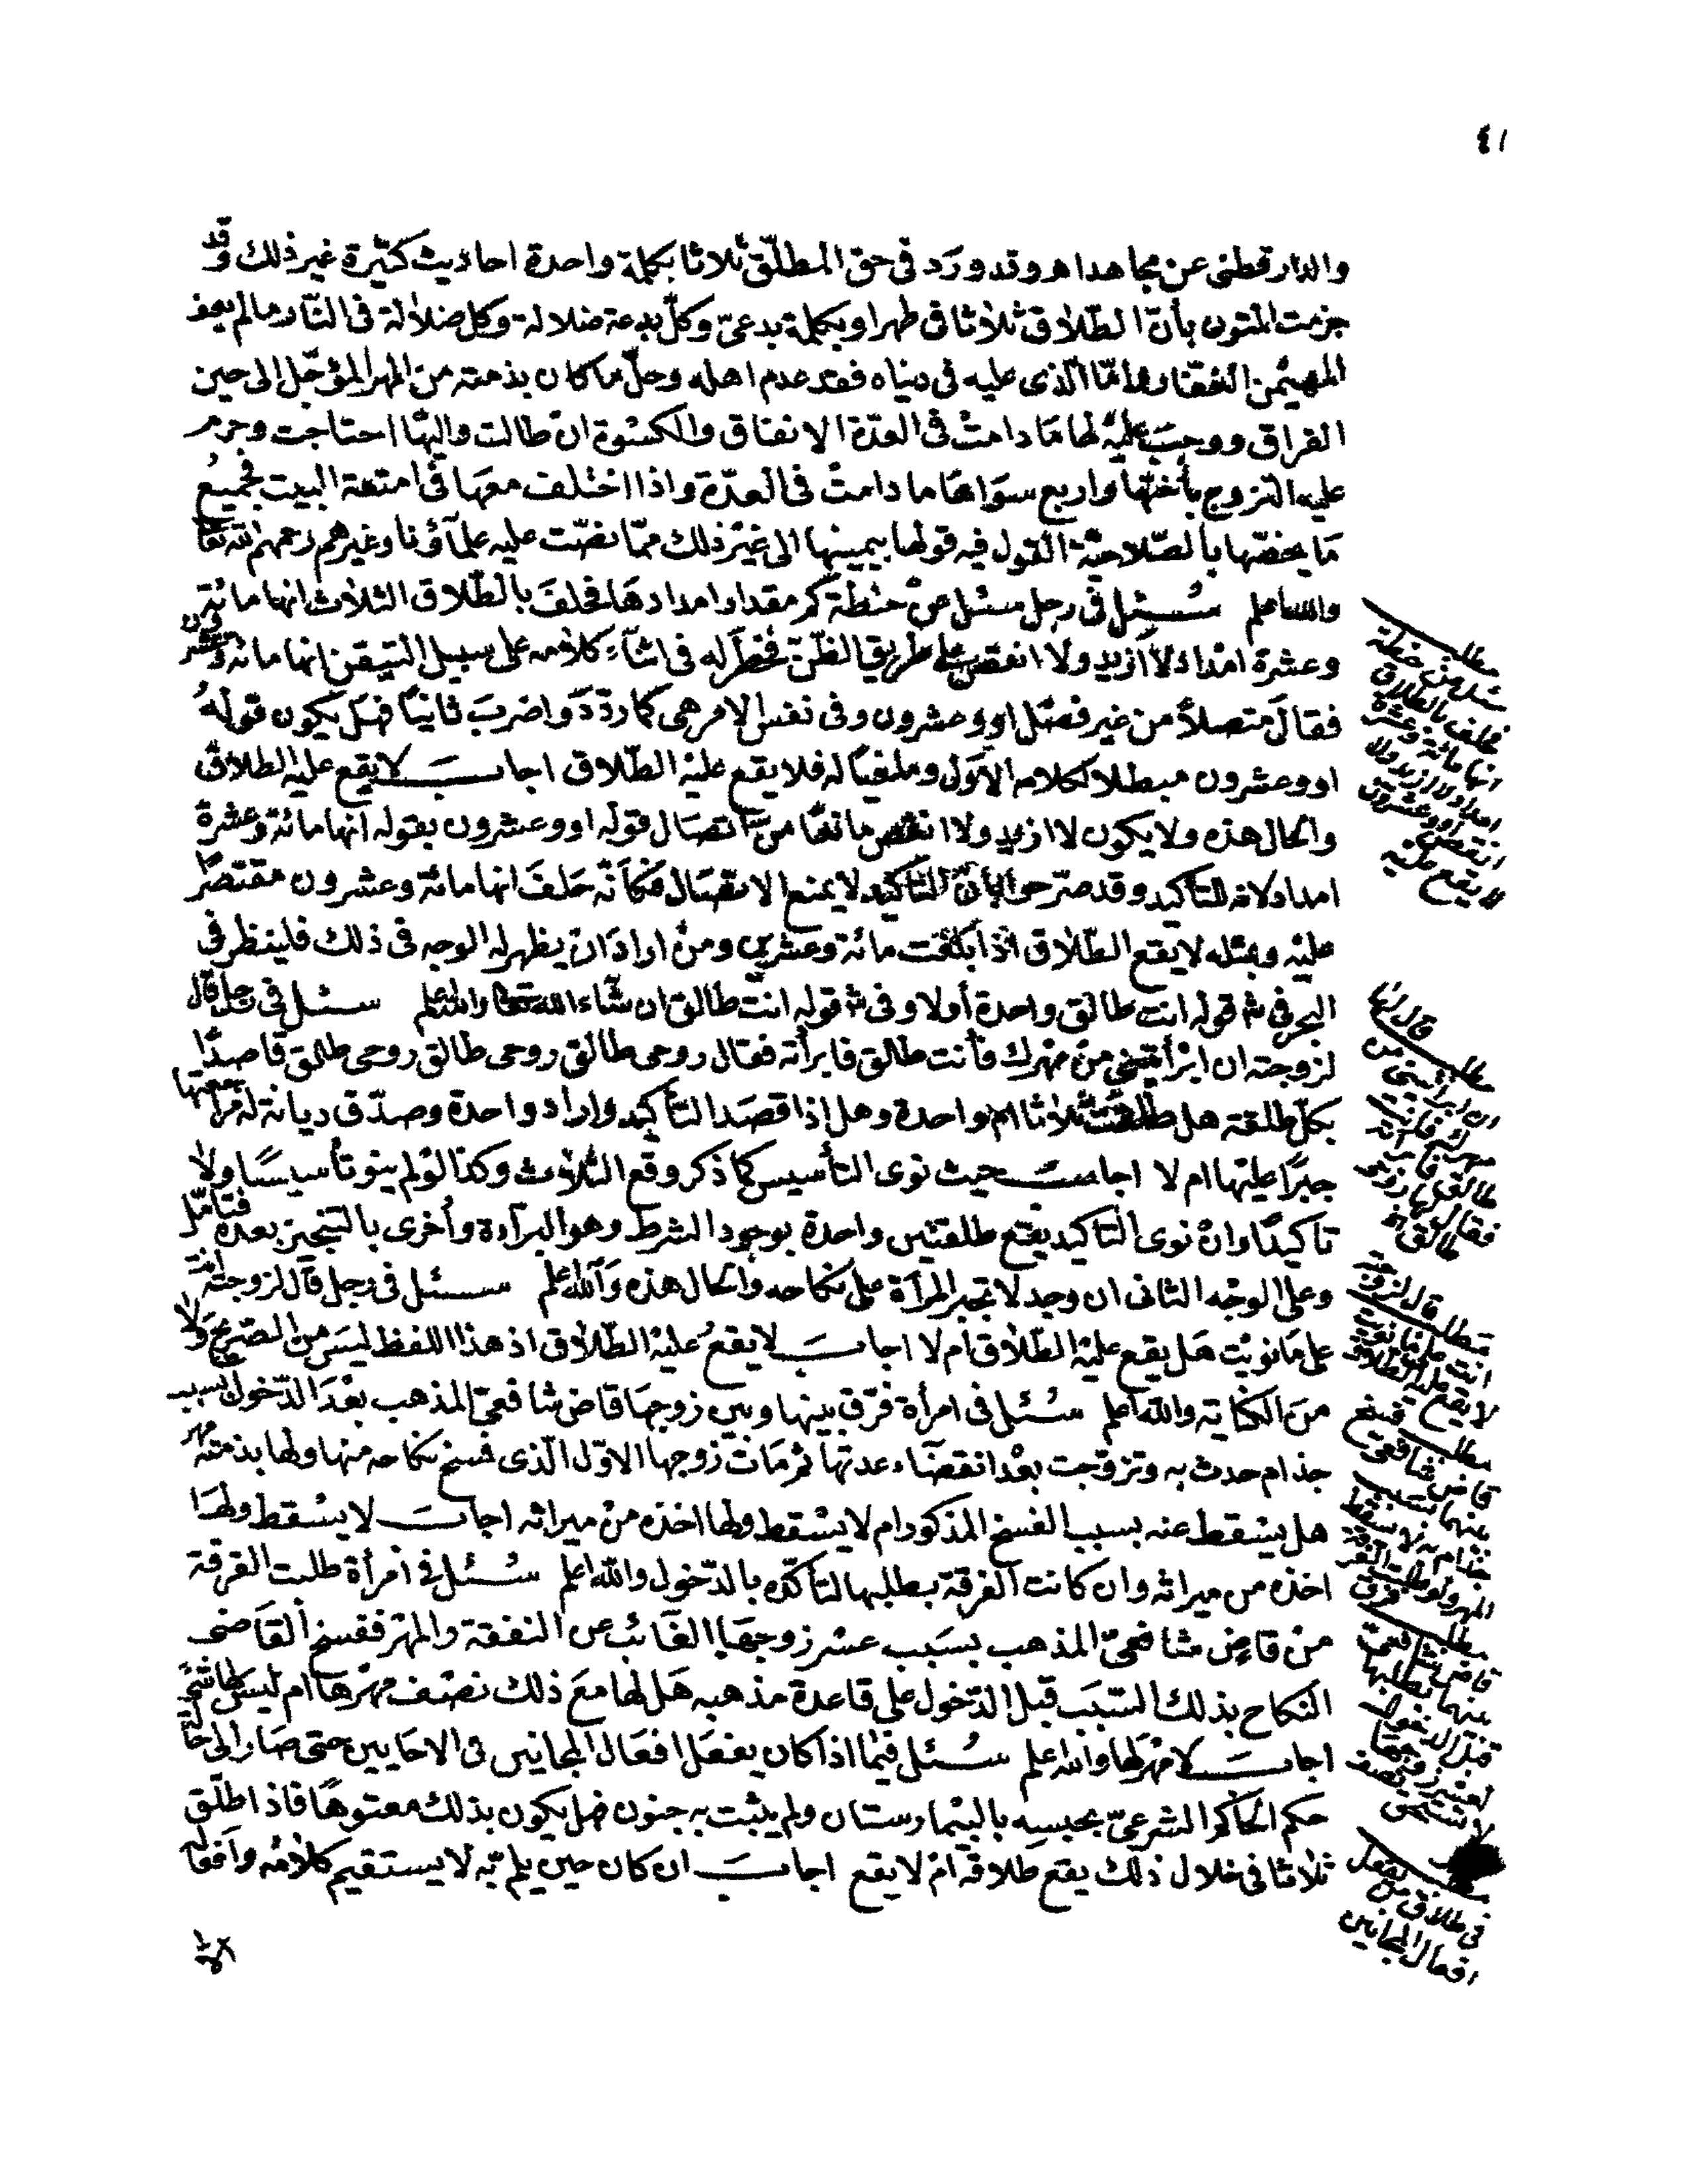 ٤١
والدارقطنى عن مجاهد اهـ وقد ورد فى حق المطلق ثلاثا بكلمة واحدة احاديث كثيرة غير ذلك وقد
جزمت المتون بأن الطلاق ثلاثا فى طهر او بكلمة بدعىّ وكلّ بدعة ضلالة وكل ضلالة فى النار مالم يعف
المهيمن الغفار واما الذى عليه فى دنياه فقد عدم اهله وحلّ ما كان بذمته من المهر المؤجّل الى حين
الفراق ووجب عليه لها ما دامت فى العدّة الانفاق والكسوة ان طالت واليها احتاجت وحرم
عليه التزوج بأختها واربع سواها ما دامت فى العدّة واذا اختلف معها فى امتعة البيت فجميع
ما يختصها بالصلاحية القول فيه قولها بيمينها الى غير ذلك ممّا نصّت عليه علمآؤنا وغيرهم رحمهم الله تعا
والله اعلم سئل فى رجل سئل عن حنطة كم مقدار امدادها فحلف بالطلاق الثلاث انها مائة
وعشرة امداد لا ازيد ولا انقص على طريق الظنّ فخطر له فى اثناء كلامه على سبيل التيقن انها مائة وعشرون
فقال متصلاً من غير فصل او وعشرون وفى نفس الامر هى كما ردّد واضرب ثانيًا فهل يكون قوله
او وعشرون مبطلا لكلامه الاول وملغيًا له فلا يقع عليه الطلاق اجاب لا يقع عليه الطلاق
والحال هذه ولا يكون لا ازيد ولا انقص مانعًا من اتصال قوله او وعشرون بقوله انها مائة وعشرة
امداد لانه للتاكيد وقد صرّحوا بأنّ التأكيد لا يمنع الاتصال فكأنه حلف انها مائة وعشرون مقتصرًا
عليه وبمثله لا يقع الطلاق اذا بلغت مائة وعشرين ومن اراد ان يظهر له الوجه فى ذلك فلينظر فى
البحر فى شرح قوله انت طالق واحدة أولا وفى شرح قوله انت طالق ان شاء الله تعالى والله اعلم سئل فى رجل قال
لزوجته ان ابرأتينى من مهرك فأنت طالق فابرأته فقال روحى طالق روحى طالق روحى طالق قاصدًا
بكلّ طلقة هل طلقت ثلاثا ام واحدة وهل إذا قصد التأكيد واراد واحدة وصدّق ديانة له مراجعتها
جبرًا عليها ام لا اجاب حيث نوى التأسيس كما ذكر وقع الثلاث وكذا لو لم ينو تأسيسًا ولا
تاكيدًا وان نوى التاكيد يقع طلقتين واحدة بوجود الشرط وهو البرآءة وأخرى بالتنجيز بعده فتأمّل
وعلى الوجه الثانى ان وجد لا تجبر المرآة على نكاحه والحال هذه والله اعلم سئل فى رجل قال لزوجته انت
على ما نويت هل يقع عليه الطلاق ام لا اجاب لا يقع عليه الطلاق اذ هذا اللفظ ليس من الصريح ولا
من الكناية والله اعلم سئل فى امرأة فرّق بينها وبين زوجها قاض شافعىّ المذهب بعد الدّخول بسبب
جذام حدث به وتزوّجت بعد انقضاء عدتها ثم مات زوجها الاوّل الّذى فسخ نكاحه منها ولها بذمته مهر
هل يسقط عنه بسبب الفسخ المذكور ام لا يسقط ولها اخذه من ميراثه اجاب لا يسقط ولها
اخذه من ميراثه وان كانت الفرقة بطلبها لتأكّده بالدّخول والله اعلم سئل فى امرأة طلبت الفرقة
من قاض شافعىّ المذهب بسبب عسر زوجها الغائب عن النفقة والمهر ففسخ القاضى
النكاح بذلك السّبب قبل الدّخول على قاعدة مذهبه هل لها مع ذلك نصف مهرها ام ليس لها شئ
اجاب لا مهر لها والله اعلم سئل فيما اذا كان يفعل افعال المجانين فى الاحايين حتى صار الى
حكم الحاكم الشرعىّ بحبسه بالبيمارستان ولم يثبت به جنون فهل يكون بذلك معتوهًا فاذا طلّق
ثلاثا فى خلال ذلك يقع طلاقه ام لا يقع اجاب ان كان حين يلم به لا يستقيم كلامه وافعاله
مطلب
سئل عن حنطة
فحلف بالطلاق
انها مائة وعشرة
امداد لا ازيد ولا
انقص او وعشرون
لا يقع عليه
مطلب قال لزوجته
ان ابرأتينى من
مهرك فانت
طالق فابرأته
فقال لها روحى
طالق الخ
مطلب قال لزوجته
انت على ما نويت
لا يقع عليه الطلاق
مطلب فسخ
قاض شافعى
بينهما بسبب
جذام به لا يسقط
المهر ولو طلبت الفرقة
مطلب فرق
قاض شافعى
بينهما بطلبها
قبل الدخول
لعسر زوجها
لا تستحق نصف
فى طلاق من يفعل
افعال المجانين